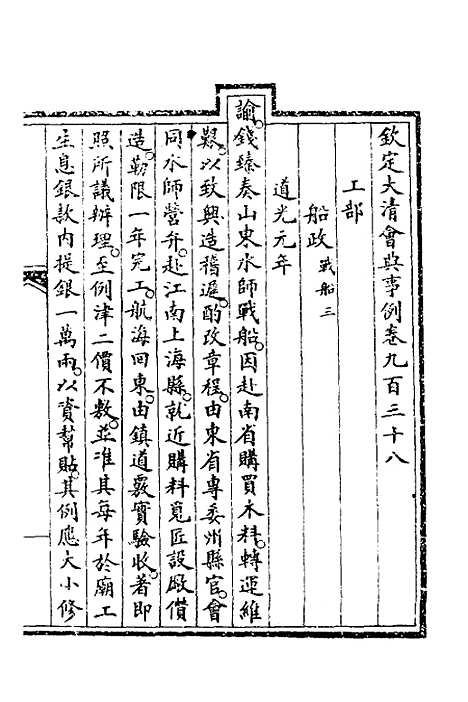 欽定大清會典事例卷九百三十八
工部
船政戰船三
道光元年
諭錢臻奏山東水師戰船。因赴南省購買木料。轉運維
艱。以致興造稽遲。酌改章程。由東省專委州縣官。會
同水師營弁。赴江南上海縣。就近購料覓匠設廠價
造。勒限一年完工。航海回東。由鎮道覈實驗收。著即
照所議辦理。至例津二價不敷。並准其每年於廟工
生息銀款內提銀一萬兩。以資幫貼。其例應大小修